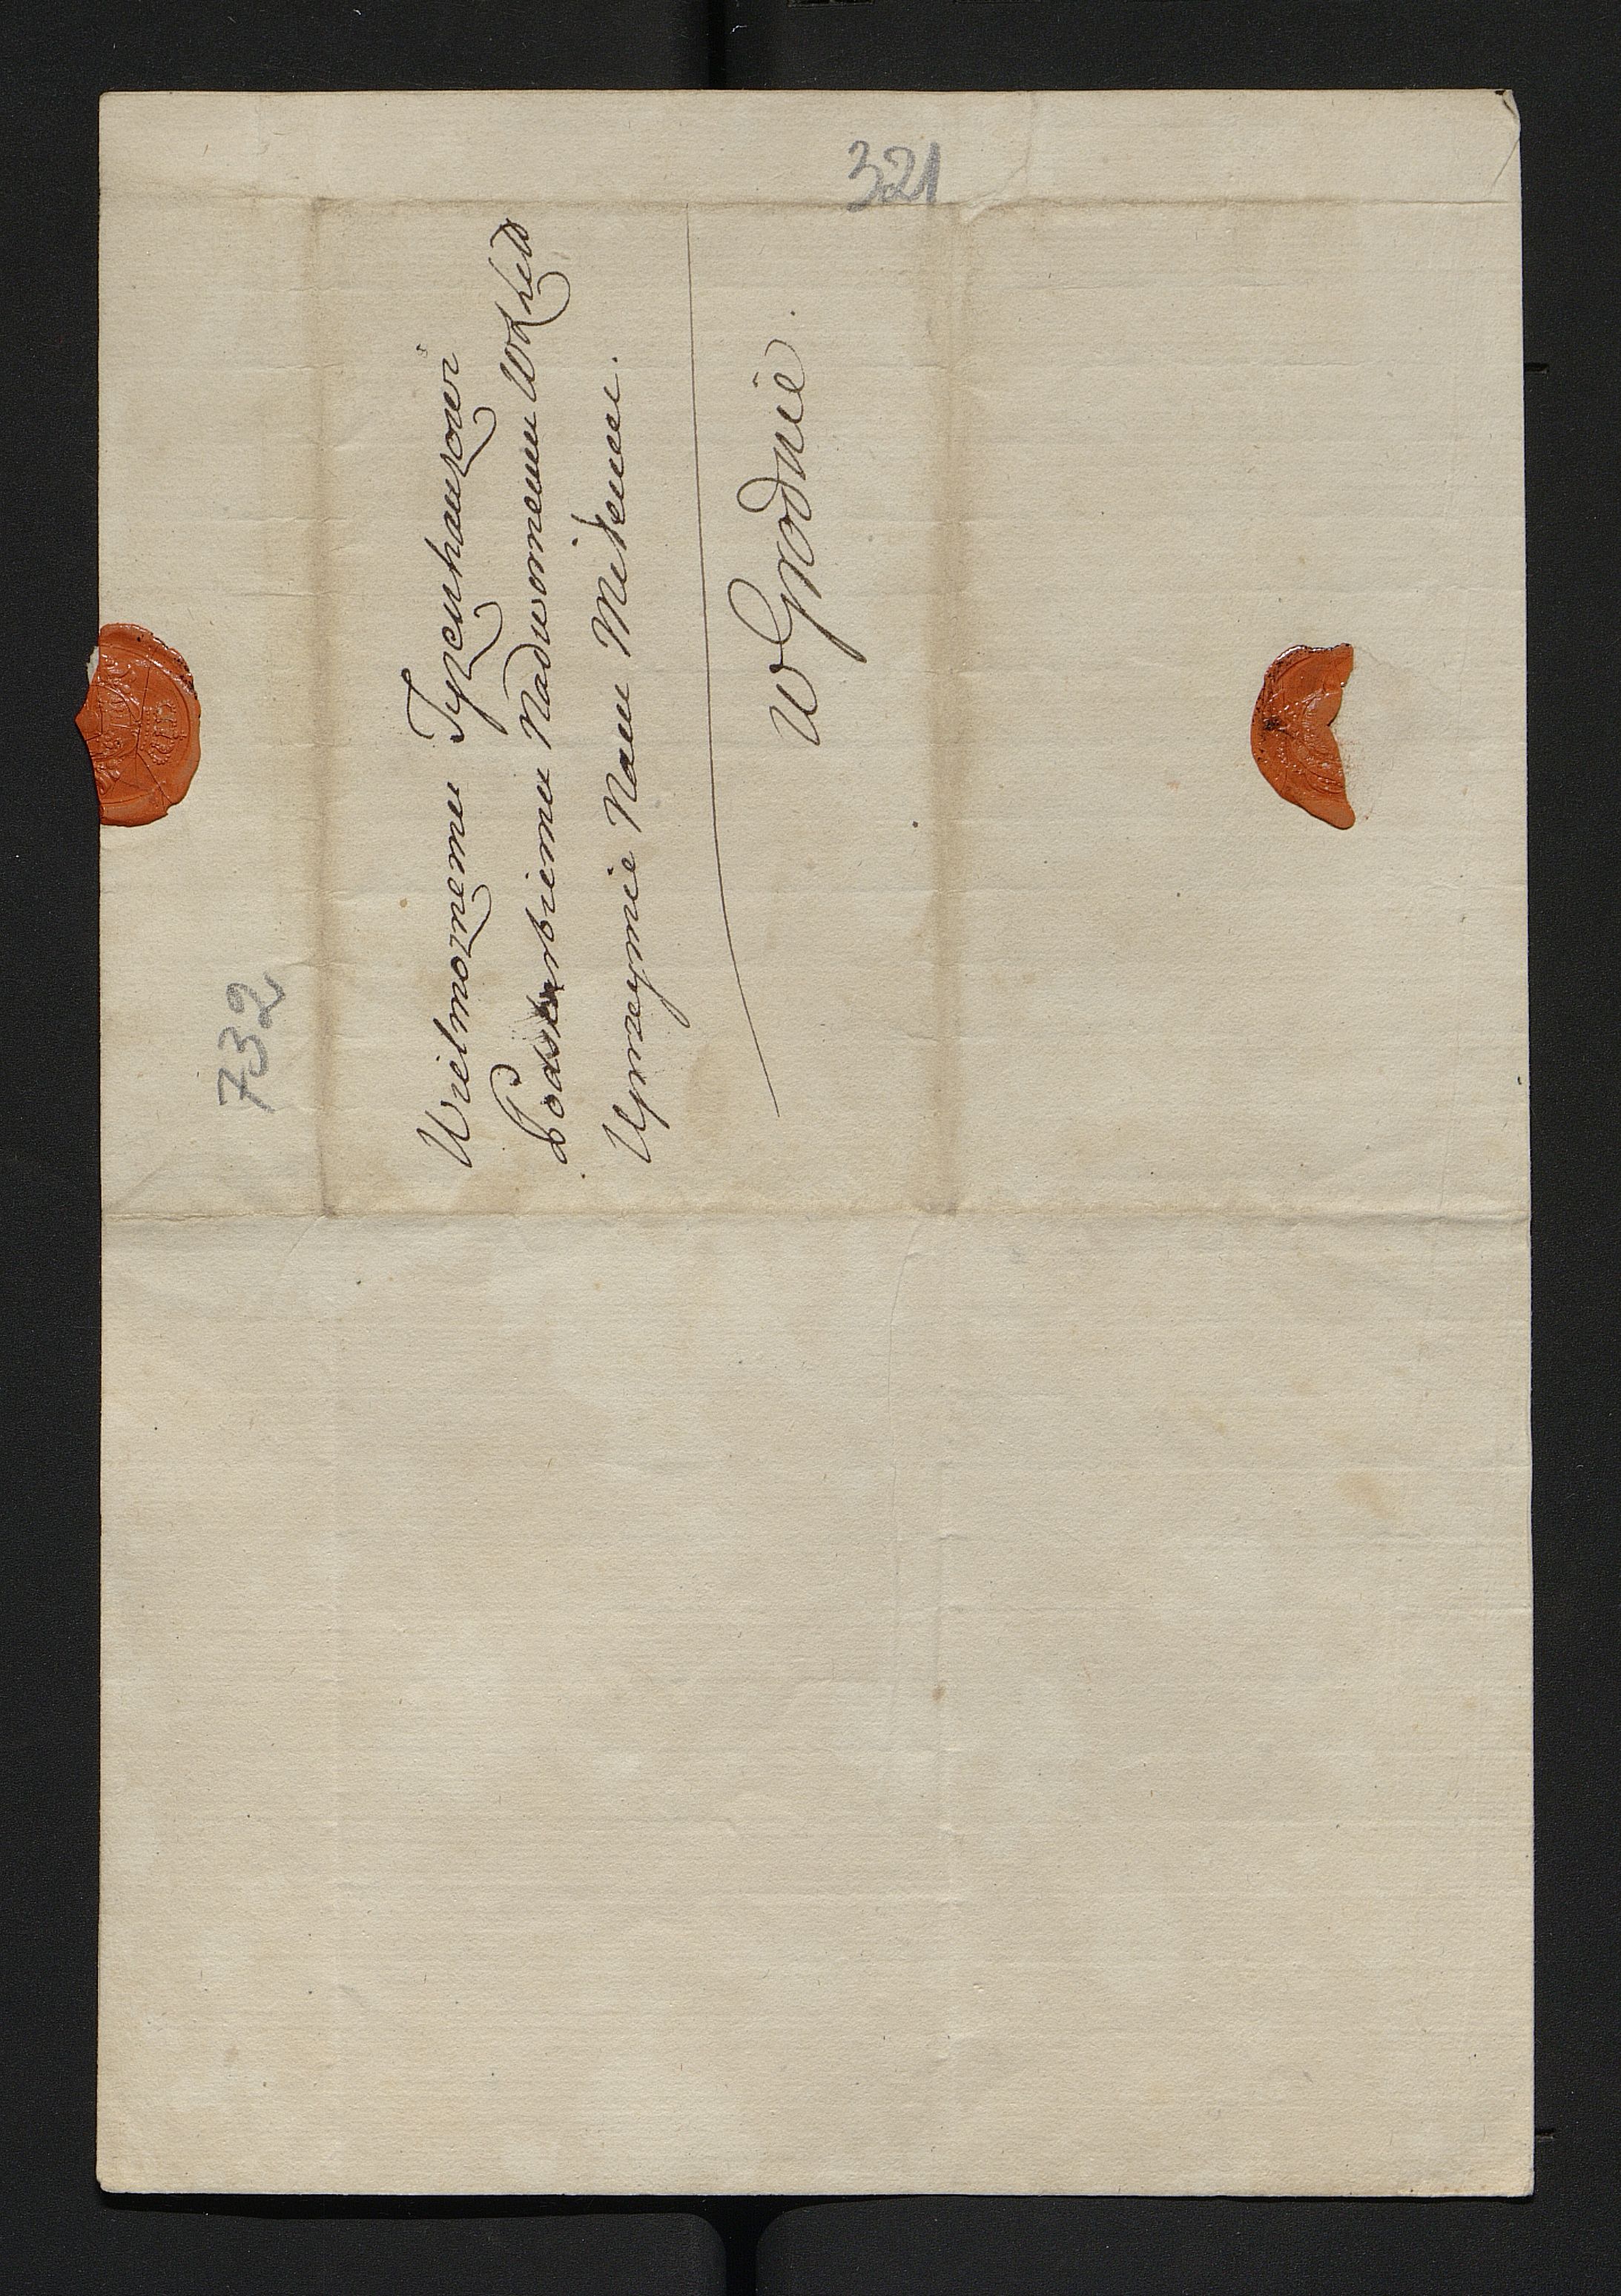 321
732
Wielmoznemu Tyzenhauzowi
Podskarbiemu Nadwornemu WXLitt
Uprzeymie Nam Miłemu.
w Grodnie.